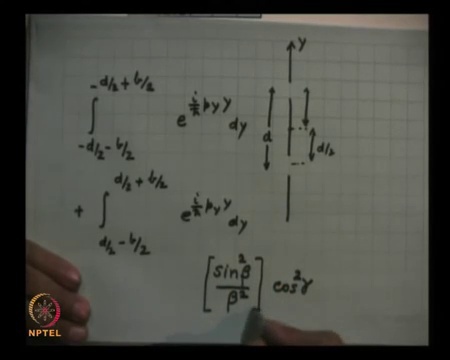 -d/2 + b/2
∫ e^{i/ħ p_y y} dy
-d/2 - b/2
d/2 + b/2
+ ∫ e^{i/ħ p_y y} dy
d/2 - b/2
y
d
d/2
[sin²β / β²] cos²γ
NPTEL